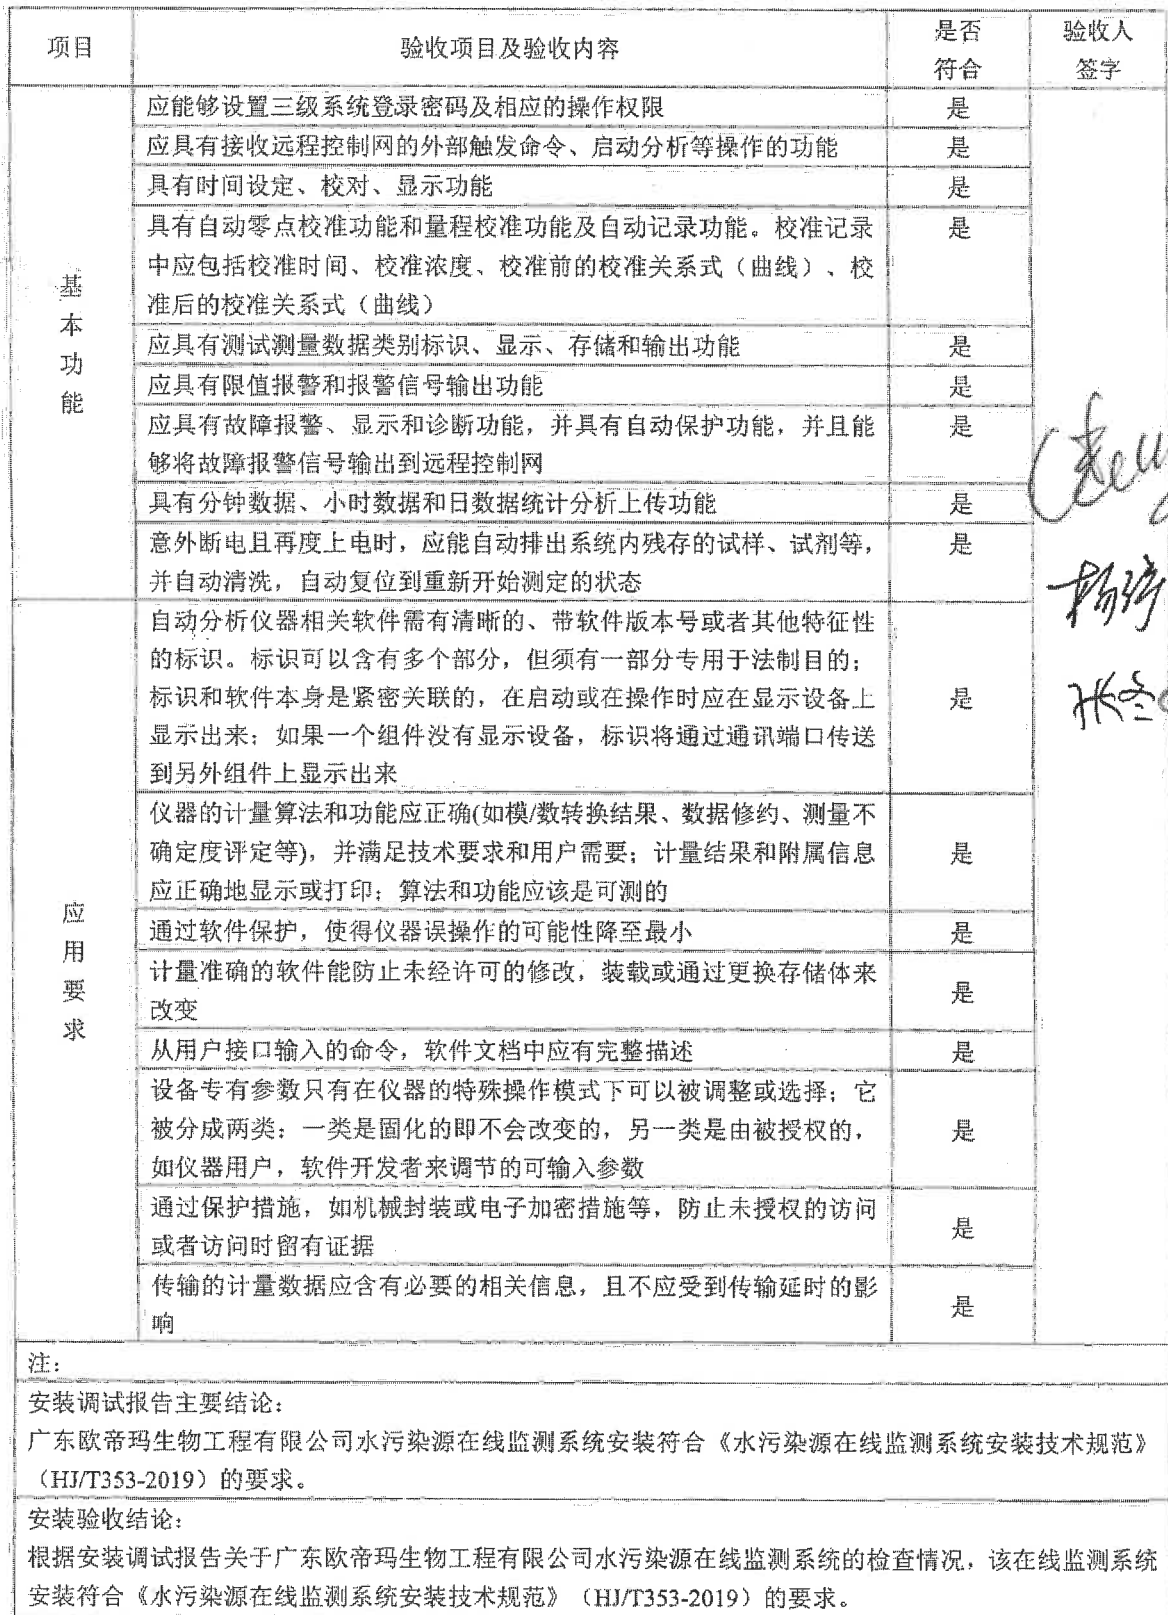 项目
验收项目及验收内容
是否
符合
验收人
签字
基
本
功
能
应能够设置三级系统登录密码及相应的操作权限
是
应具有接收远程控制网的外部触发命令、启动分析等操作的功能
是
具有时间设定、校对、显示功能
是
具有自动零点校准功能和量程校准功能及自动记录功能。校准记录
中应包括校准时间、校准浓度、校准前的校准关系式（曲线）、校
准后的校准关系式（曲线）
是
应具有测试测量数据类别标识、显示、存储和输出功能
是
应具有限值报警和报警信号输出功能
是
应具有故障报警、显示和诊断功能，并具有自动保护功能，并且能
够将故障报警信号输出到远程控制网
是
具有分钟数据、小时数据和日数据统计分析上传功能
是
意外断电且再度上电时，应能自动排出系统内残存的试样、试剂等，
并自动清洗，自动复位到重新开始测定的状态
是
应
用
要
求
自动分析仪器相关软件需有清晰的、带软件版本号或者其他特征性
的标识。标识可以含有多个部分，但须有一部分专用于法制目的；
标识和软件本身是紧密关联的，在启动或在操作时应在显示设备上
显示出来；如果一个组件没有显示设备，标识将通过通讯端口传送
到另外组件上显示出来
是
仪器的计量算法和功能应正确(如模/数转换结果、数据修约、测量不
确定度评定等)，并满足技术要求和用户需要；计量结果和附属信息
应正确地显示或打印；算法和功能应该是可测的
是
通过软件保护，使得仪器误操作的可能性降至最小
是
计量准确的软件能防止未经许可的修改，装载或通过更换存储体来
改变
是
从用户接口输入的命令，软件文档中应有完整描述
是
设备专有参数只有在仪器的特殊操作模式下可以被调整或选择；它
被分成两类：一类是固化的即不会改变的，另一类是由被授权的，
如仪器用户，软件开发者来调节的可输入参数
是
通过保护措施，如机械封装或电子加密措施等，防止未授权的访问
或者访问时留有证据
是
传输的计量数据应含有必要的相关信息，且不应受到传输延时的影
响
是
注：
安装调试报告主要结论：
广东欧帝玛生物工程有限公司水污染源在线监测系统安装符合《水污染源在线监测系统安装技术规范》
（HJ/T353-2019）的要求。
安装验收结论：
根据安装调试报告关于广东欧帝玛生物工程有限公司水污染源在线监测系统的检查情况，该在线监测系统
安装符合《水污染源在线监测系统安装技术规范》（HJ/T353-2019）的要求。